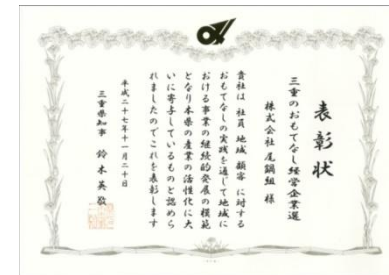 表彰状
三重のおもてなし経営企業選
株式会社 尾鍋組 様
貴社は 社員 地域 顧客 に対する
おもてなしの実践を通して地域に
おける事業の継続的発展の模範
となり本県の産業の活性化に大
いに寄与しているものと認めら
れましたのでこれを表彰します
平成二十七年十一月二十日
三重県知事 鈴木英敬